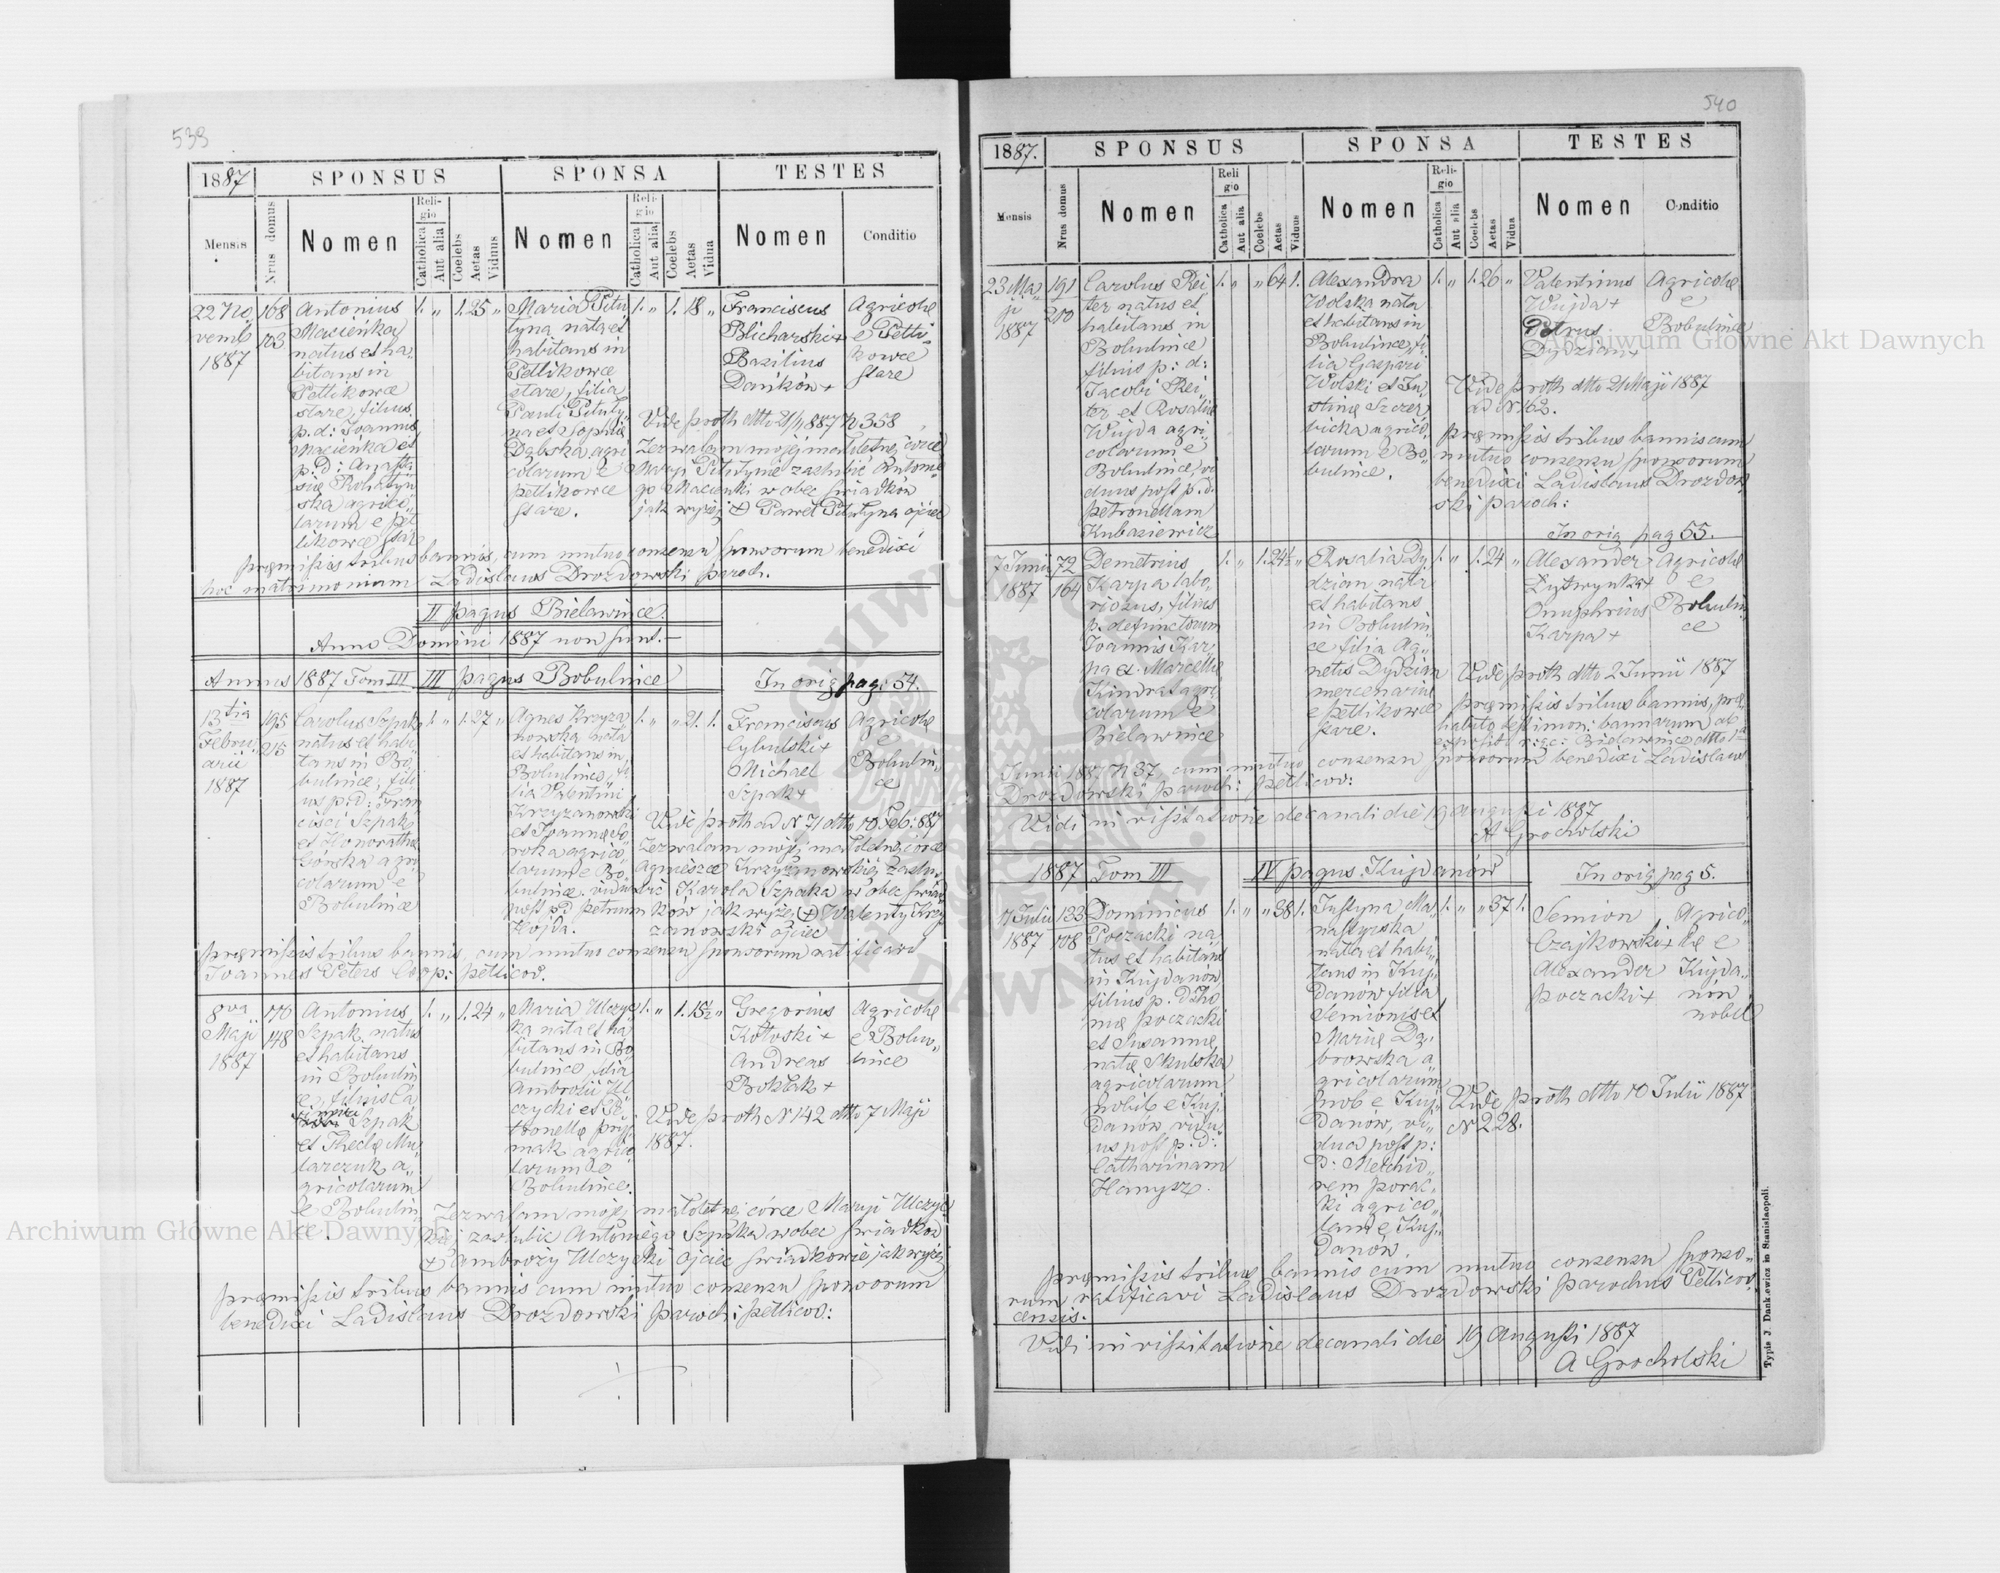 539
1887
SPONSUS
SPONSA
TESTES
Mensis
Nrus domus
Nomen
Religio
Catholica
Aut alia
Coelebs
Aetas
Viduus
Nomen
Religio
Catholica
Aut alia
Coelebs
Aetas
Vidua
Nomen
Conditio
22 No
vemb
1887
168
103
Antonius
Macieńka
natus et ha
bitans in
Petlikowce
stare, filius
p. d: Joannis
Macieńka et
p. d: Anasta
siæ Rohatyn
ska agrico
larum e Pet
likowce star
1. „ 1. 25 „
Maria Pitu
tyna nata et
habitans in
Petlikowce
stare, filia
Pauli Pituty
na et Sophiæ
Dąbska agri
colarum e
Petlikowce
stare.
1. „ 1. 18 „
Franciscus
Blicharski +
Bazilius
Dańków +
Agricolæ
e Petli
kowce
stare
Vide proth dtto 21/11 887 N 358
Zezwalam mojej małoletniej córce
Maryi Pitutynie zaślubić Antonie
go Macienki w obec świadków
jak wyżej + Paweł Pitutyna ojciec
præmissis tribus bannis, cum mutuo consensu sponsorum benedixi
hoc matrimonium Ladislaus Drozdowski paroch.
II pagus Bielawince.
Anno Domini 1887 non sunt.—
Annus 1887 Tom III III pagus Bobulince
In orig pag: 54.
13 tia
Febru
arii
1887
195
215
Carolus Szpak
natus et habi
tans in Bo
bulince, fili
us p: d: Fran
cisci Szpak
et Honorathæ
Górska agri
colarum e
Bobulince
1. „ 1. 27 „
Agnes Krzyża
nowska nata
et habitans in
Bobulince, fi
lia Valentini
Krzyżanowski
et Joannæ So
roka agrico
larum e Bo
bulince. vidua
post pd Petrum
Hojda.
1. „ „ 21. 1.
Franciscus
Cybulski +
Michael
Szpak +
Agricolæ
e
Bobulin„
ce
Vide proth ad N 71 dtto 10 Feb: 887
Zezwalam mojej małoletniej córce
Agnieszce Krzyżanowskiej zaślu
bić Karola Szpaka w obec świad
ków jak wyżej + Walenty Krzy
żanowski ojciec
præmissis tribus bannis, cum mutuo consensu sponsorum ratificavi
Joannes Peters Coop: petlicov.
8 va
Maji
1887
170
148
Antonius
Szpak natus
et habitans
in Bobulin
e, filius Ca
simiri Szpak
et Theclæ Mu
larczuk a„
gricolarum
e Bobulin
ce
1. „ 1. 24 „
Maria Ulczyc
ka nata et ha
bitans in Bo
bulince, filia
Ambrosii Ul
czycki et Pe
tronellæ Pryj
mak agrico
larum e
Bobulince.
1. „ 1. 15½ „
Gregorius
Kotowski +
Andreas
Bokłak +
Agricolæ
e Bobu„
lince
Vide proth N 142 dtto 7 Maji
1887.
Zezwalam mojej małoletniej córce Maryi Ulczyc
kiej zaślubić Antoniego Szpaka wobec świadków
+ Ambroży Ulczycki ojciec świadkowie jak wyżej
præmissis tribus bannis cum mutuo consensu sponsorum
benedixi Ladislaus Drozdowski Paroch: petlicov:
540
1887.
SPONSUS
SPONSA
TESTES
Mensis
Nrus domus
Nomen
Religio
Catholica
Aut alia
Coelebs
Aetas
Viduus
Nomen
Religio
Catholica
Aut alia
Coelebs
Aetas
Vidua
Nomen
Conditio
23 Ma„
ji
1887
191
210
Carolus Rei
ter natus et
habitans in
Bobulince
filius p: d:
Jacobi Rei
ter et Rosaliæ
Wujda agri
colarum e
Bobulince, vi
duus post p. d.
Petronellam
Kubasiewicz
1. „ „ 64 1.
Alexandra
Wolska nata
et habitans in
Bobulince, fi
lia Gaspari
Wolski et Ju
stinæ Szczer
bicka agrico
larum e Bo
bulince.
1. „ 1. 26 „
Valentinus
Wujda +
Petrus
Dydzian +
Agricolæ
e
Bobulince
Vide proth dtto 21 Maji 1887
ad N 162.
præmissis tribus bannis cum
mutuo consensu sponsorum
benedixi Ladislaus Drozdow
ski paroch:
In orig pag 55.
7 Junii
1887
72
164
Demetrius
Karpa labo„
riosus, filius
p. defunctorum
Joannis Kar
pa et Marcellæ
Kindrat agri
colarum e
Bielawince
1. „ 1. 24½ „
Rosalia Dy
dzian nata
et habitans
in Bobulin
ce filia Ag„
netis Dydzian
mercenariæ
e Petlikowce
stare.
1. „ 1. 24 „
Alexander
Żytwynka +
Onuphrius
Karpa +
Agricolæ
e
Bobulin„
ce
Vide proth dtto 2 Junii 1887
præmissis tribus bannis, præ
habito testimon: bannorum ab
exposit: r: gr: c: Bielawince dtto 1a
Junii 1887 N 37, cum mutuo consensu sponsorum benedixi Ladislaus
Drozdowski Paroch: petlicov:
Vidi in visitatione decanali die 19 Augusti 1887
A Grocholski
1887 Tom III
IV pagus Kujdanów
In orig pag 5.
17 Julii
1887
133
108
Dominicus
Poczacki na
tus et habitans
in Kujdanów
filius p. d. Tho
mæ Poczacki
et Susannæ
natæ Skulska
agricolarum
nobil: e Kuj
danów, vidu
us post p: d:
Catharinam
Hanysz.
1. „ „ 38 1.
Justyna Ma
nastyrska
nata et habi
tans in Kuj
danów filia
Semionis et
Mariæ Dą
browska a„
gricolarum
nob e Kuj
danów, vi„
dua post p:
d: Melchio„
rem Porac„
ki agrico„
lam e Kuj„
danów.
1. „ „ 37 1.
Semion
Czajkowski +
Alexander
Poczacki +
Agrico„
læ e
Kujda„
nów
nobil
Vide proth dtto 10 Julii 1887
N 228.
præmissis tribus bannis cum mutuo consensu sponso„
rum ratificavi Ladislaus Drozdowski Parochus Petlicov
censis.
Vidi in visitatione decanali die 19 Augusti 1887
A Grocholski
Typis J. Dankiewicz in Stanislaopoli.
Archiwum Główne Akt Dawnych
Archiwum Główne Akt Dawnych